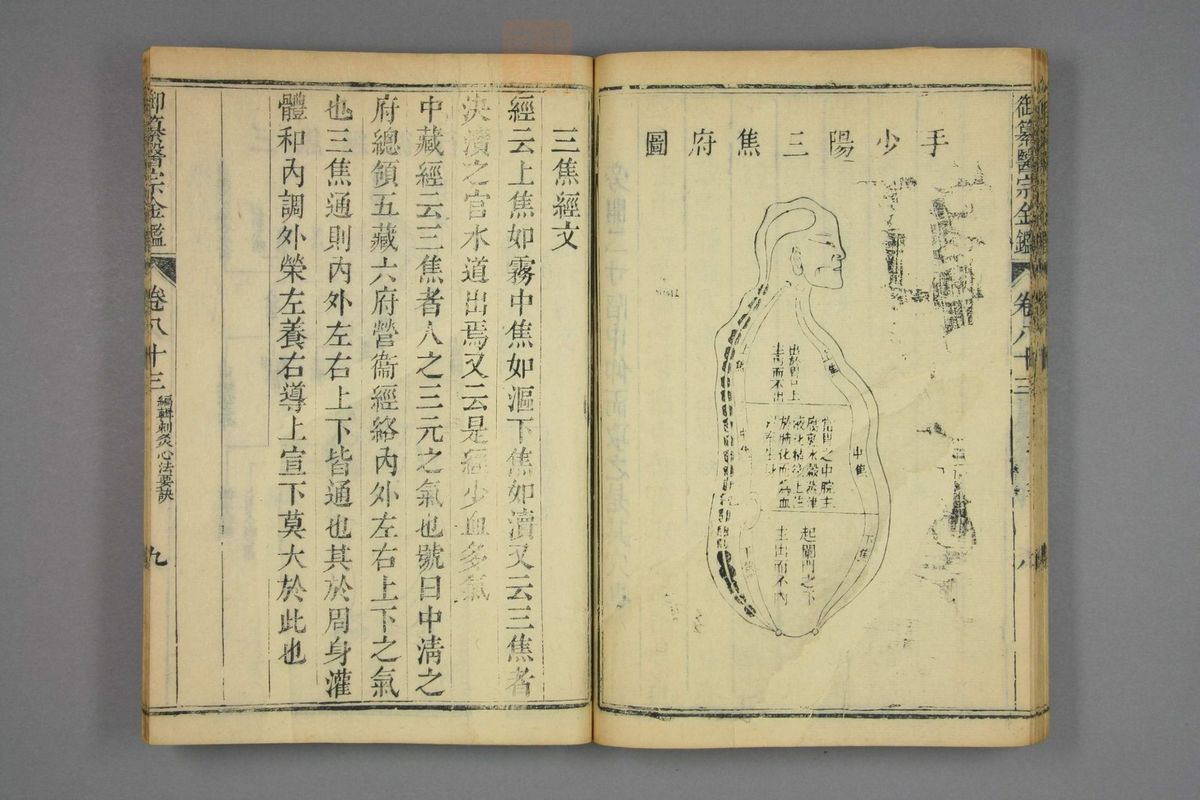 御纂醫宗金鑑
卷八十三
八
手少陽三焦府圖
上焦
出於胃口上
主內而不出
上焦
中焦
當胃之中脘主
腐熟水穀蒸津
液化精微上注
於肺化而為血
中焦
下焦
起闌門之下
主出而不內
下焦
三焦經文
經云上焦如霧中焦如漚下焦如瀆又云三焦者
決瀆之官水道出焉又云是經少血多氣
中藏經云三焦者人之三元之氣也號曰中淸之
府總領五藏六府營衞經絡內外左右上下之氣
也三焦通則內外左右上下皆通也其於周身灌
體和內調外榮左養右導上宣下莫大於此也
御纂醫宗金鑑
卷八十三
編輯刺灸心法要訣
九